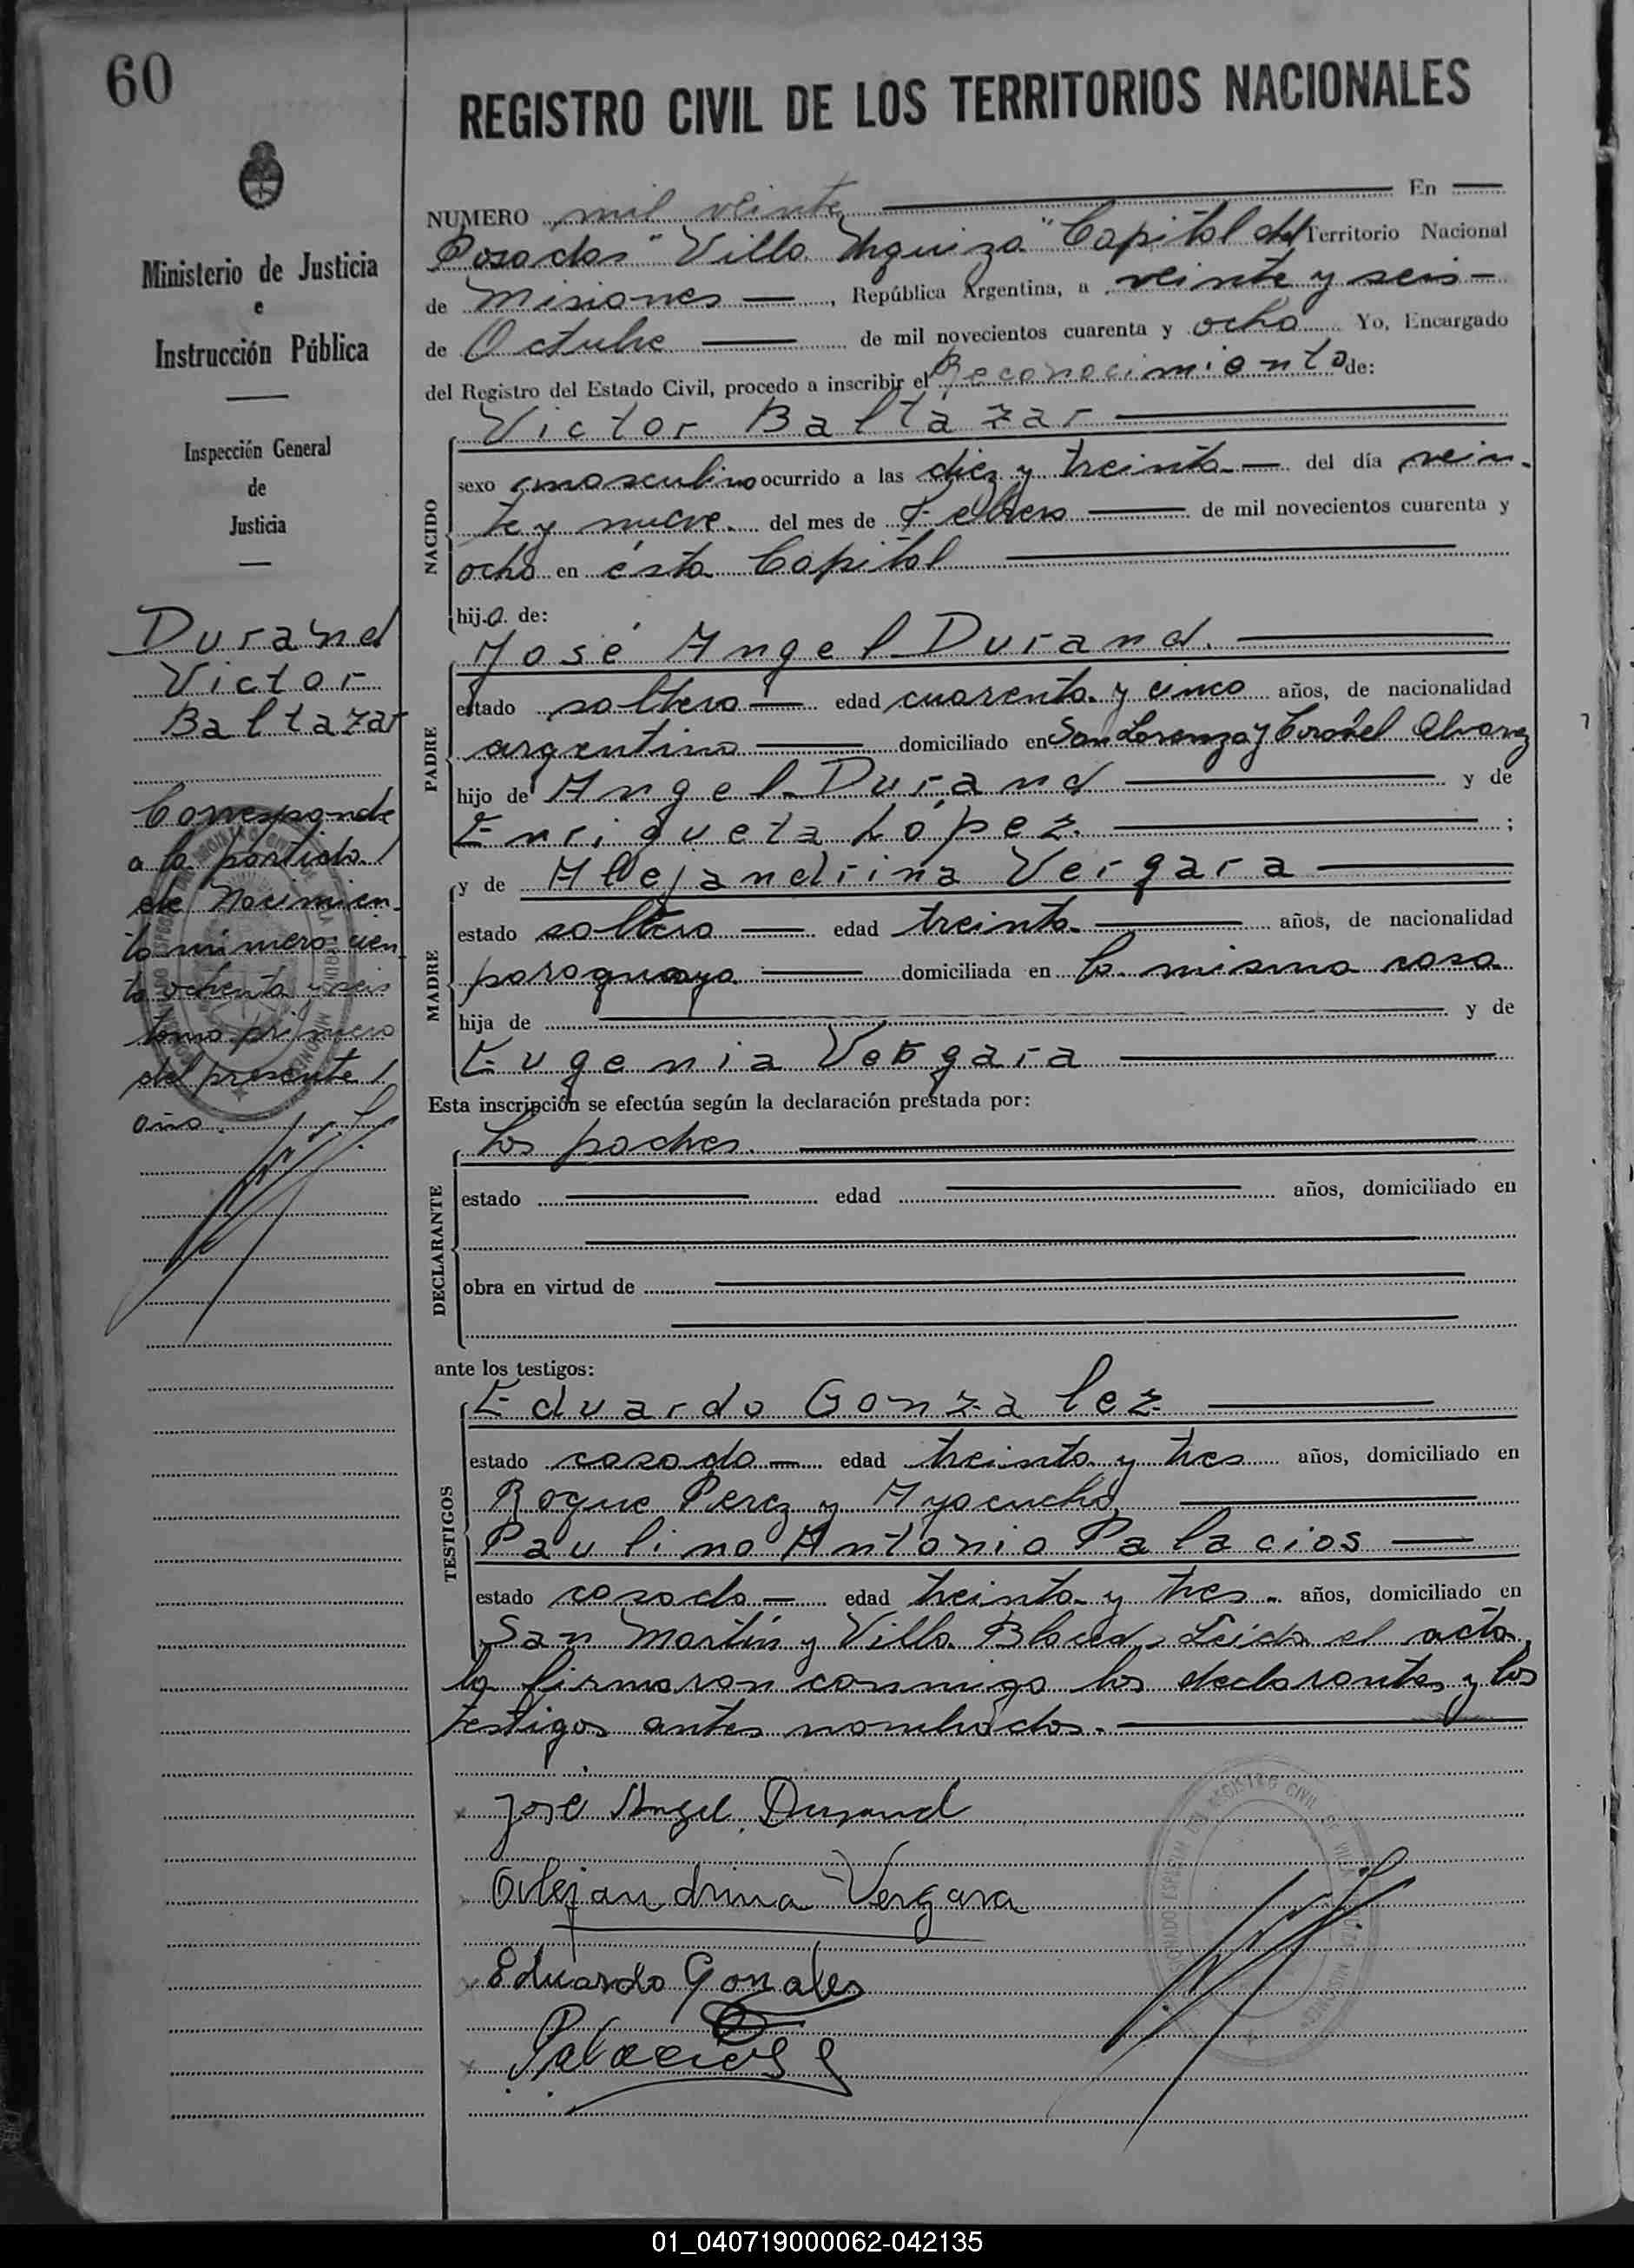 60
REGISTRO CIVIL DE LOS TERRITORIOS NACIONALES
Ministerio de Justicia
e
Instrucción Pública
Inspección General
de
Justicia
Durand
Victor
Baltazar
Corresponde
a la partida
de Nacimien-
to número: cien
to ochenta y seis
tomo primero
del presente
año.
NUMERO mil veinte En
Posadas "Villa Urquiza" Capital del Territorio Nacional
de Misiones, República Argentina, a veinte y seis
de Octubre de mil novecientos cuarenta y ocho Yo, Encargado
del Registro del Estado Civil, procedo a inscribir el Reconocimiento de:
NACIDO
Victor Baltázar
sexo masculino ocurrido a las diez y treinta del día vein-
te y nueve del mes de Febrero de mil novecientos cuarenta y
ocho en ésta Capital
hijo de:
PADRE
José Angel Durand.
estado soltero edad cuarenta y cinco años, de nacionalidad
argentino domiciliado en San Lorenzo y Coronel Alvarez
hijo de Angel Durand y de
Enriqueta López. ;
MADRE
y de Alejandrina Vergara
estado soltera edad treinta años, de nacionalidad
paraguaya domiciliada en la misma casa
hija de y de
Eugenia Vergara
Esta inscripción se efectúa según la declaración prestada por:
DECLARANTE
los padres.
estado edad años, domiciliado en
obra en virtud de
ante los testigos:
TESTIGOS
Eduardo Gonzalez
estado casado edad treinta y tres años, domiciliado en
Roque Perez y Ayacucho
Paulino Antonio Palacios
estado casado edad treinta y tres años, domiciliado en
San Martín y Villa Blosed, Leida el acta,
la firmaron conmigo los declarantes y los
testigos antes nombrados.
José Angel Durand
Alejandrina Vergara
Eduardo Gonzales
Palacios
01_040719000062-042135